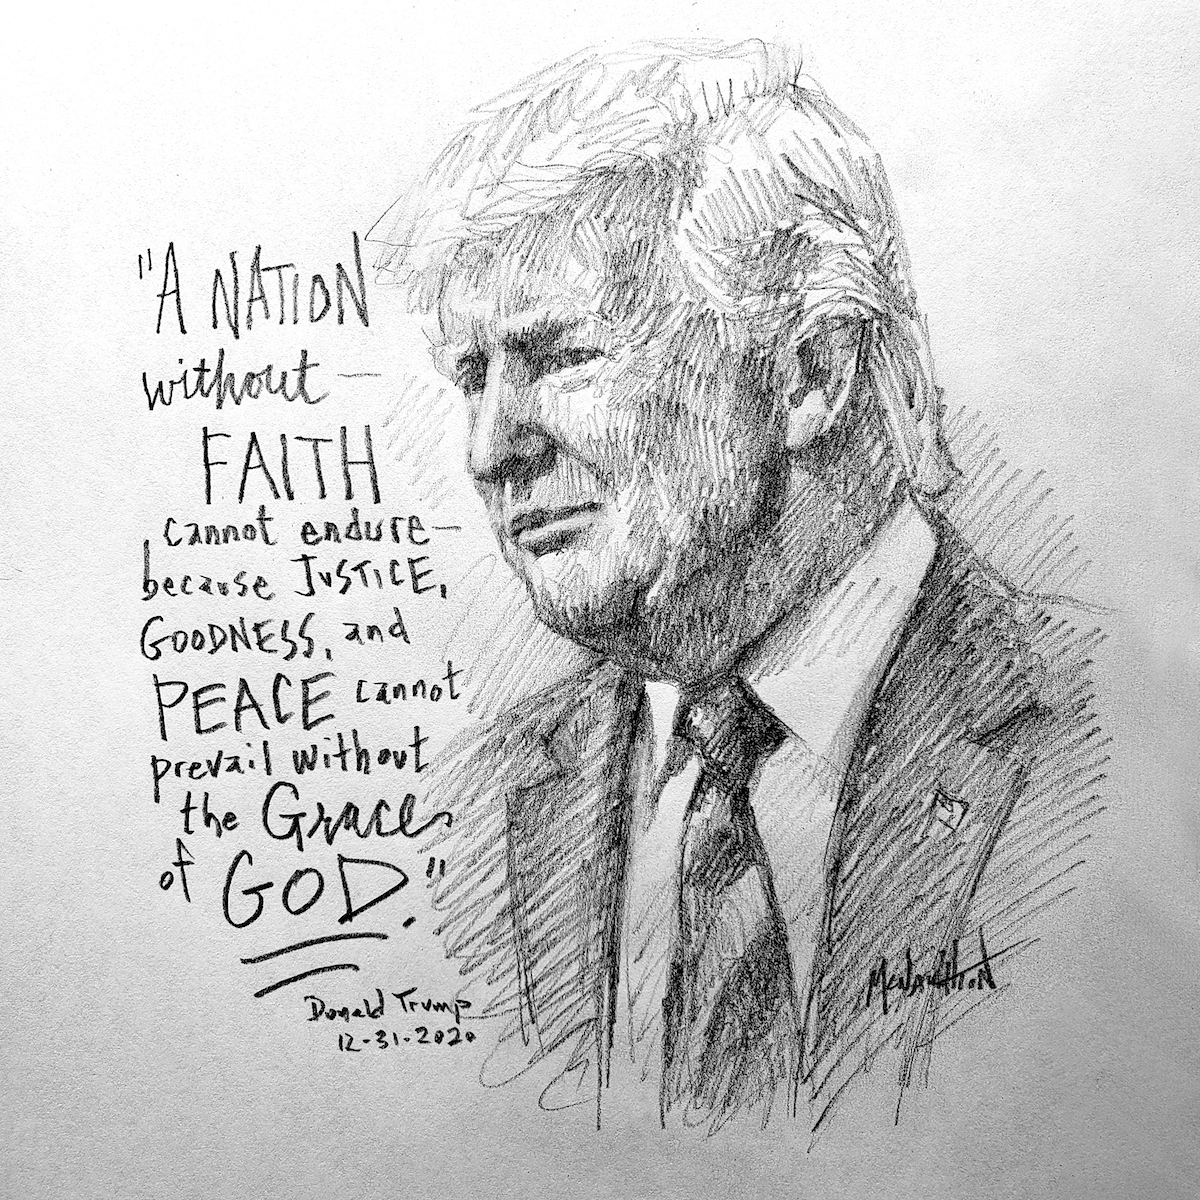 "A NATION
without —
FAITH
cannot endure—
because JUSTICE,
GOODNESS, and
PEACE cannot
prevail without
the Grace
of GOD."
Donald Trump
12-31-2020
McNaughton